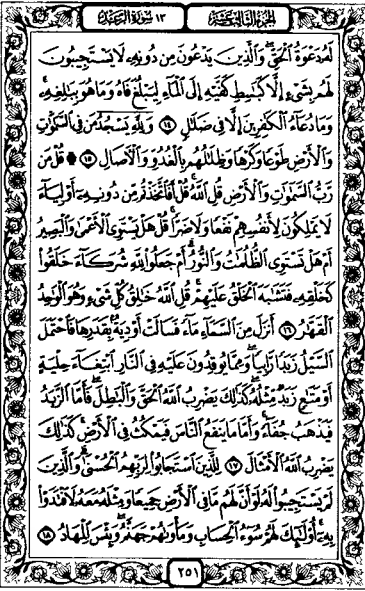 الجزء الثالث عشر ١٣ سورة الرعد
لَهُۥ دَعْوَةُ ٱلْحَقِّ ۖ وَٱلَّذِينَ يَدْعُونَ مِن دُونِهِۦ لَا يَسْتَجِيبُونَ
لَهُم بِشَىْءٍ إِلَّا كَبَٰسِطِ كَفَّيْهِ إِلَى ٱلْمَآءِ لِيَبْلُغَ فَاهُ وَمَا هُوَ بِبَٰلِغِهِۦ ۚ
وَمَا دُعَآءُ ٱلْكَٰفِرِينَ إِلَّا فِى ضَلَٰلٍ ١٤ وَلِلَّهِ يَسْجُدُ مَن فِى ٱلسَّمَٰوَٰتِ
وَٱلْأَرْضِ طَوْعًا وَكَرْهًا وَظِلَٰلُهُم بِٱلْغُدُوِّ وَٱلْءَاصَالِ ۩ ١٥ قُلْ مَن
رَّبُّ ٱلسَّمَٰوَٰتِ وَٱلْأَرْضِ قُلِ ٱللَّهُ ۚ قُلْ أَفَٱتَّخَذْتُم مِّن دُونِهِۦٓ أَوْلِيَآءَ
لَا يَمْلِكُونَ لِأَنفُسِهِمْ نَفْعًا وَلَا ضَرًّا ۚ قُلْ هَلْ يَسْتَوِى ٱلْأَعْمَىٰ وَٱلْبَصِيرُ
أَمْ هَلْ تَسْتَوِى ٱلظُّلُمَٰتُ وَٱلنُّورُ ۗ أَمْ جَعَلُوا۟ لِلَّهِ شُرَكَآءَ خَلَقُوا۟
كَخَلْقِهِۦ فَتَشَٰبَهَ ٱلْخَلْقُ عَلَيْهِمْ ۚ قُلِ ٱللَّهُ خَٰلِقُ كُلِّ شَىْءٍ وَهُوَ ٱلْوَٰحِدُ
ٱلْقَهَّٰرُ ١٦ أَنزَلَ مِنَ ٱلسَّمَآءِ مَآءً فَسَالَتْ أَوْدِيَةٌۢ بِقَدَرِهَا فَٱحْتَمَلَ
ٱلسَّيْلُ زَبَدًا رَّابِيًا ۚ وَمِمَّا يُوقِدُونَ عَلَيْهِ فِى ٱلنَّارِ ٱبْتِغَآءَ حِلْيَةٍ
أَوْ مَتَٰعٍ زَبَدٌ مِّثْلُهُۥ ۚ كَذَٰلِكَ يَضْرِبُ ٱللَّهُ ٱلْحَقَّ وَٱلْبَٰطِلَ ۚ فَأَمَّا ٱلزَّبَدُ
فَيَذْهَبُ جُفَآءً ۖ وَأَمَّا مَا يَنفَعُ ٱلنَّاسَ فَيَمْكُثُ فِى ٱلْأَرْضِ ۚ كَذَٰلِكَ
يَضْرِبُ ٱللَّهُ ٱلْأَمْثَالَ ١٧ لِلَّذِينَ ٱسْتَجَابُوا۟ لِرَبِّهِمُ ٱلْحُسْنَىٰ ۚ وَٱلَّذِينَ
لَمْ يَسْتَجِيبُوا۟ لَهُۥ لَوْ أَنَّ لَهُم مَّا فِى ٱلْأَرْضِ جَمِيعًا وَمِثْلَهُۥ مَعَهُۥ لَٱفْتَدَوْا۟
بِهِۦٓ ۚ أُو۟لَٰٓئِكَ لَهُمْ سُوٓءُ ٱلْحِسَابِ وَمَأْوَىٰهُمْ جَهَنَّمُ ۖ وَبِئْسَ ٱلْمِهَادُ ١٨
٢٥١